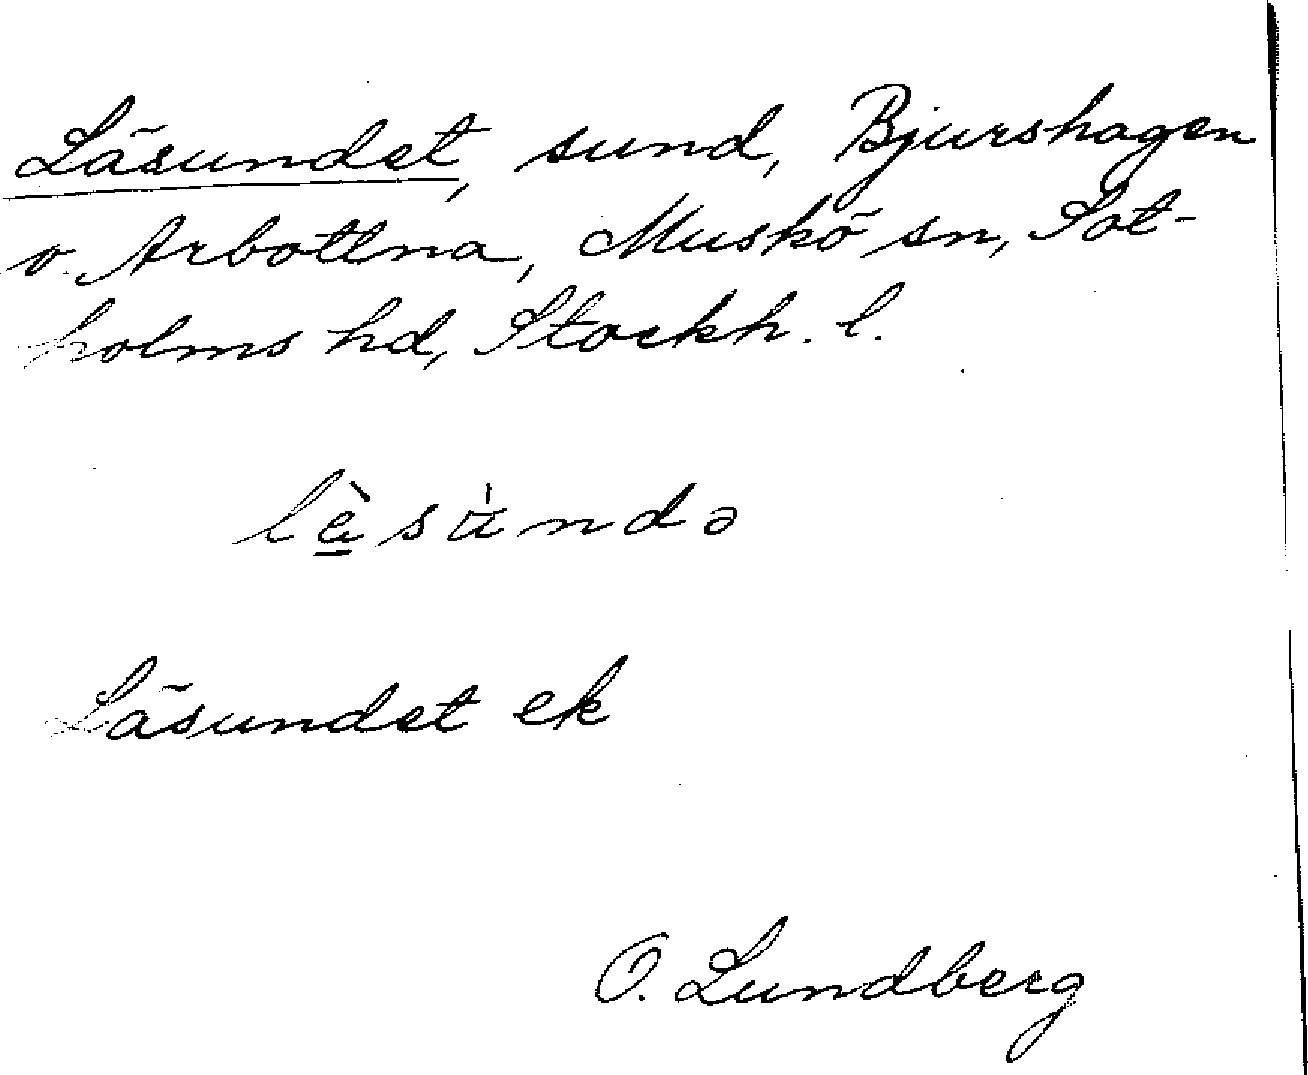 Läsundet, sund, Bjurshagen
o. Arbottna, Muskö sn, Sot-
holms hd, Stockh. l.
Läsundet ek
O. Lundberg